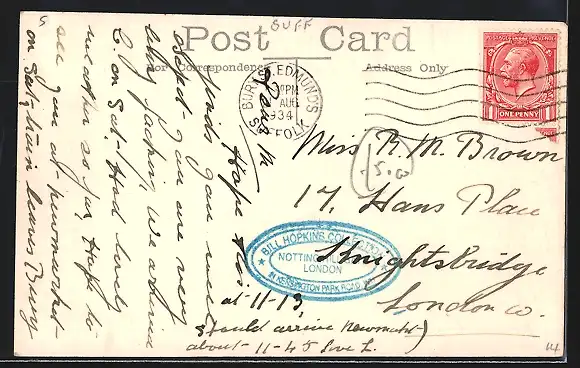 SUFF
Post Card
For Correspondence
Address Only
BURY ST. EDMUND'S
PM
AUG
1934
SUFFOLK
POSTAGE
ONE PENNY
5
Hope this
finds you
are very
busy packing. We arrived
on Sat. Had lovely
weather so far. Hope to
see you at Newmarket
on Sat. train leaves Bury
at 11-13,
should arrive Newmarket
about 11-45 love L.
Miss R. M. Brown
17, Hans Place
Knightsbridge
London
15.0
BILL HOPKINS COLLECTION
LONDON
KENSINGTON PARK ROAD
14